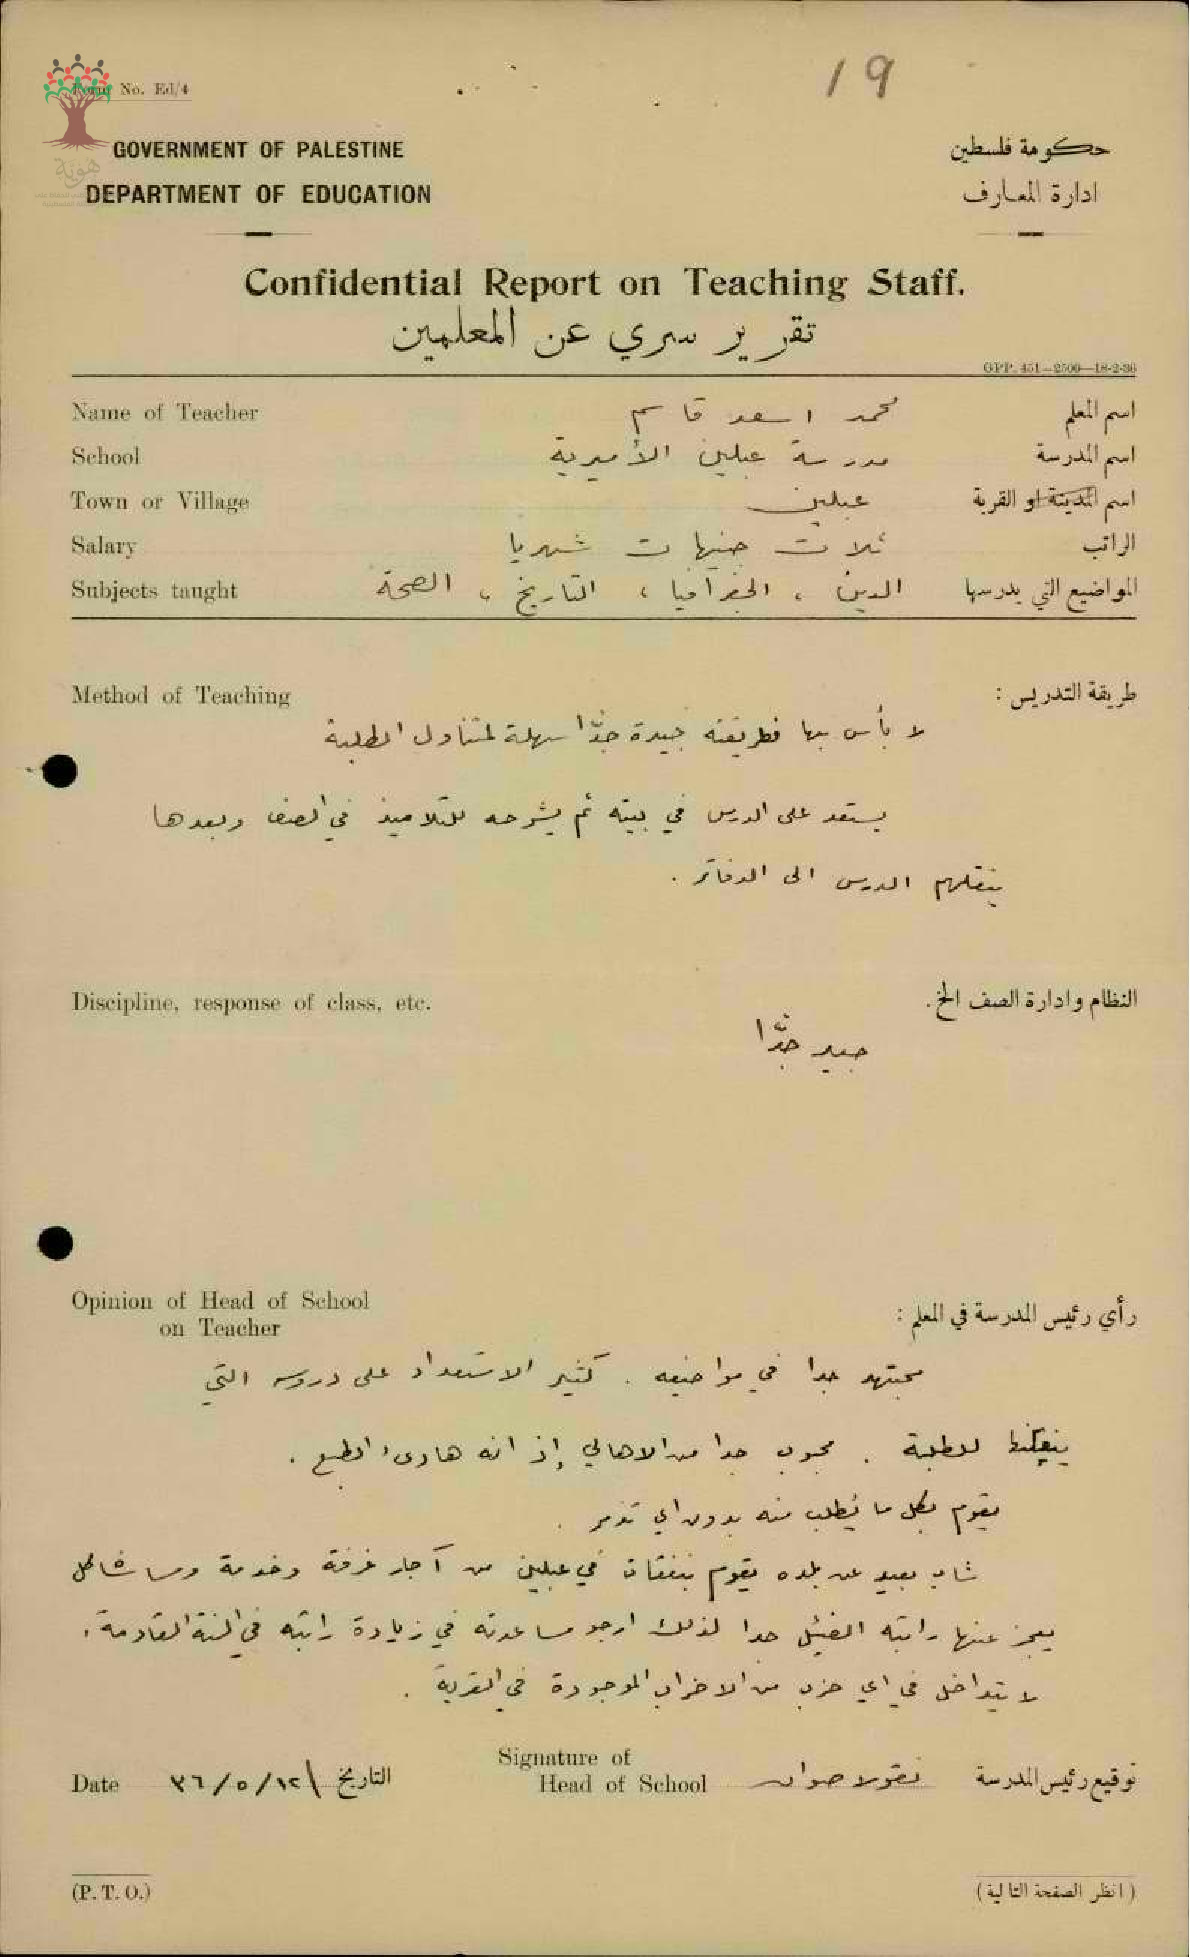 19
Form No. Ed/4
هوية
GOVERNMENT OF PALESTINE
حكومة فلسطين
DEPARTMENT OF EDUCATION
ادارة المعارف
Confidential Report on Teaching Staff.
تقرير سري عن المعلمين
GPP. 451—2500—18-2-36
Name of Teacher محمد اسعد قاسم اسم المعلم
School مدرسة عبلين الأميرية اسم المدرسة
Town or Village عبلين اسم المدينة او القرية
Salary ثلاث جنيهات شهريا الراتب
Subjects taught الدين ، الجغرافيا ، التاريخ ، الصحة المواضيع التي يدرسها
Method of Teaching طريقة التدريس :
لا بأس بها فطريقته جيدة جدًّا سهلة لمتناول الطلبة
يستعد على الدرس في بيته ثم يشرحه للتلاميذ في الصف وبعدها
ينقلهم الدرس الى الدفاتر .
Discipline, response of class, etc. النظام وادارة الصف الخ.
جيد جدًّا
Opinion of Head of School
on Teacher
رأي رئيس المدرسة في المعلم :
مجتهد جدا في مواضيعه . كثير الاستعداد على دروسه التي
للطلبة . محبوب جدا من الاهالي إذ انه هادىء الطبع .
يقوم بكل ما يُطلب منه بدون اي تذمر .
شاب بعيد عن بلده يقوم بنفقات في عبلين من آجار غرفة وخدمة ومشاكل
يعجز عنها راتبه الضئيل جدا لذلك ارجو مساعدته في زيادة راتبه في السنة القادمة .
لا يتداخل في اي حزب من الاحزاب الموجودة في القرية .
Date ١٢/٥/٣٦ التاريخ
Signature of
Head of School نقولا صوان توقيع رئيس المدرسة
(P. T. O.)
( انظر الصفحة التالية )